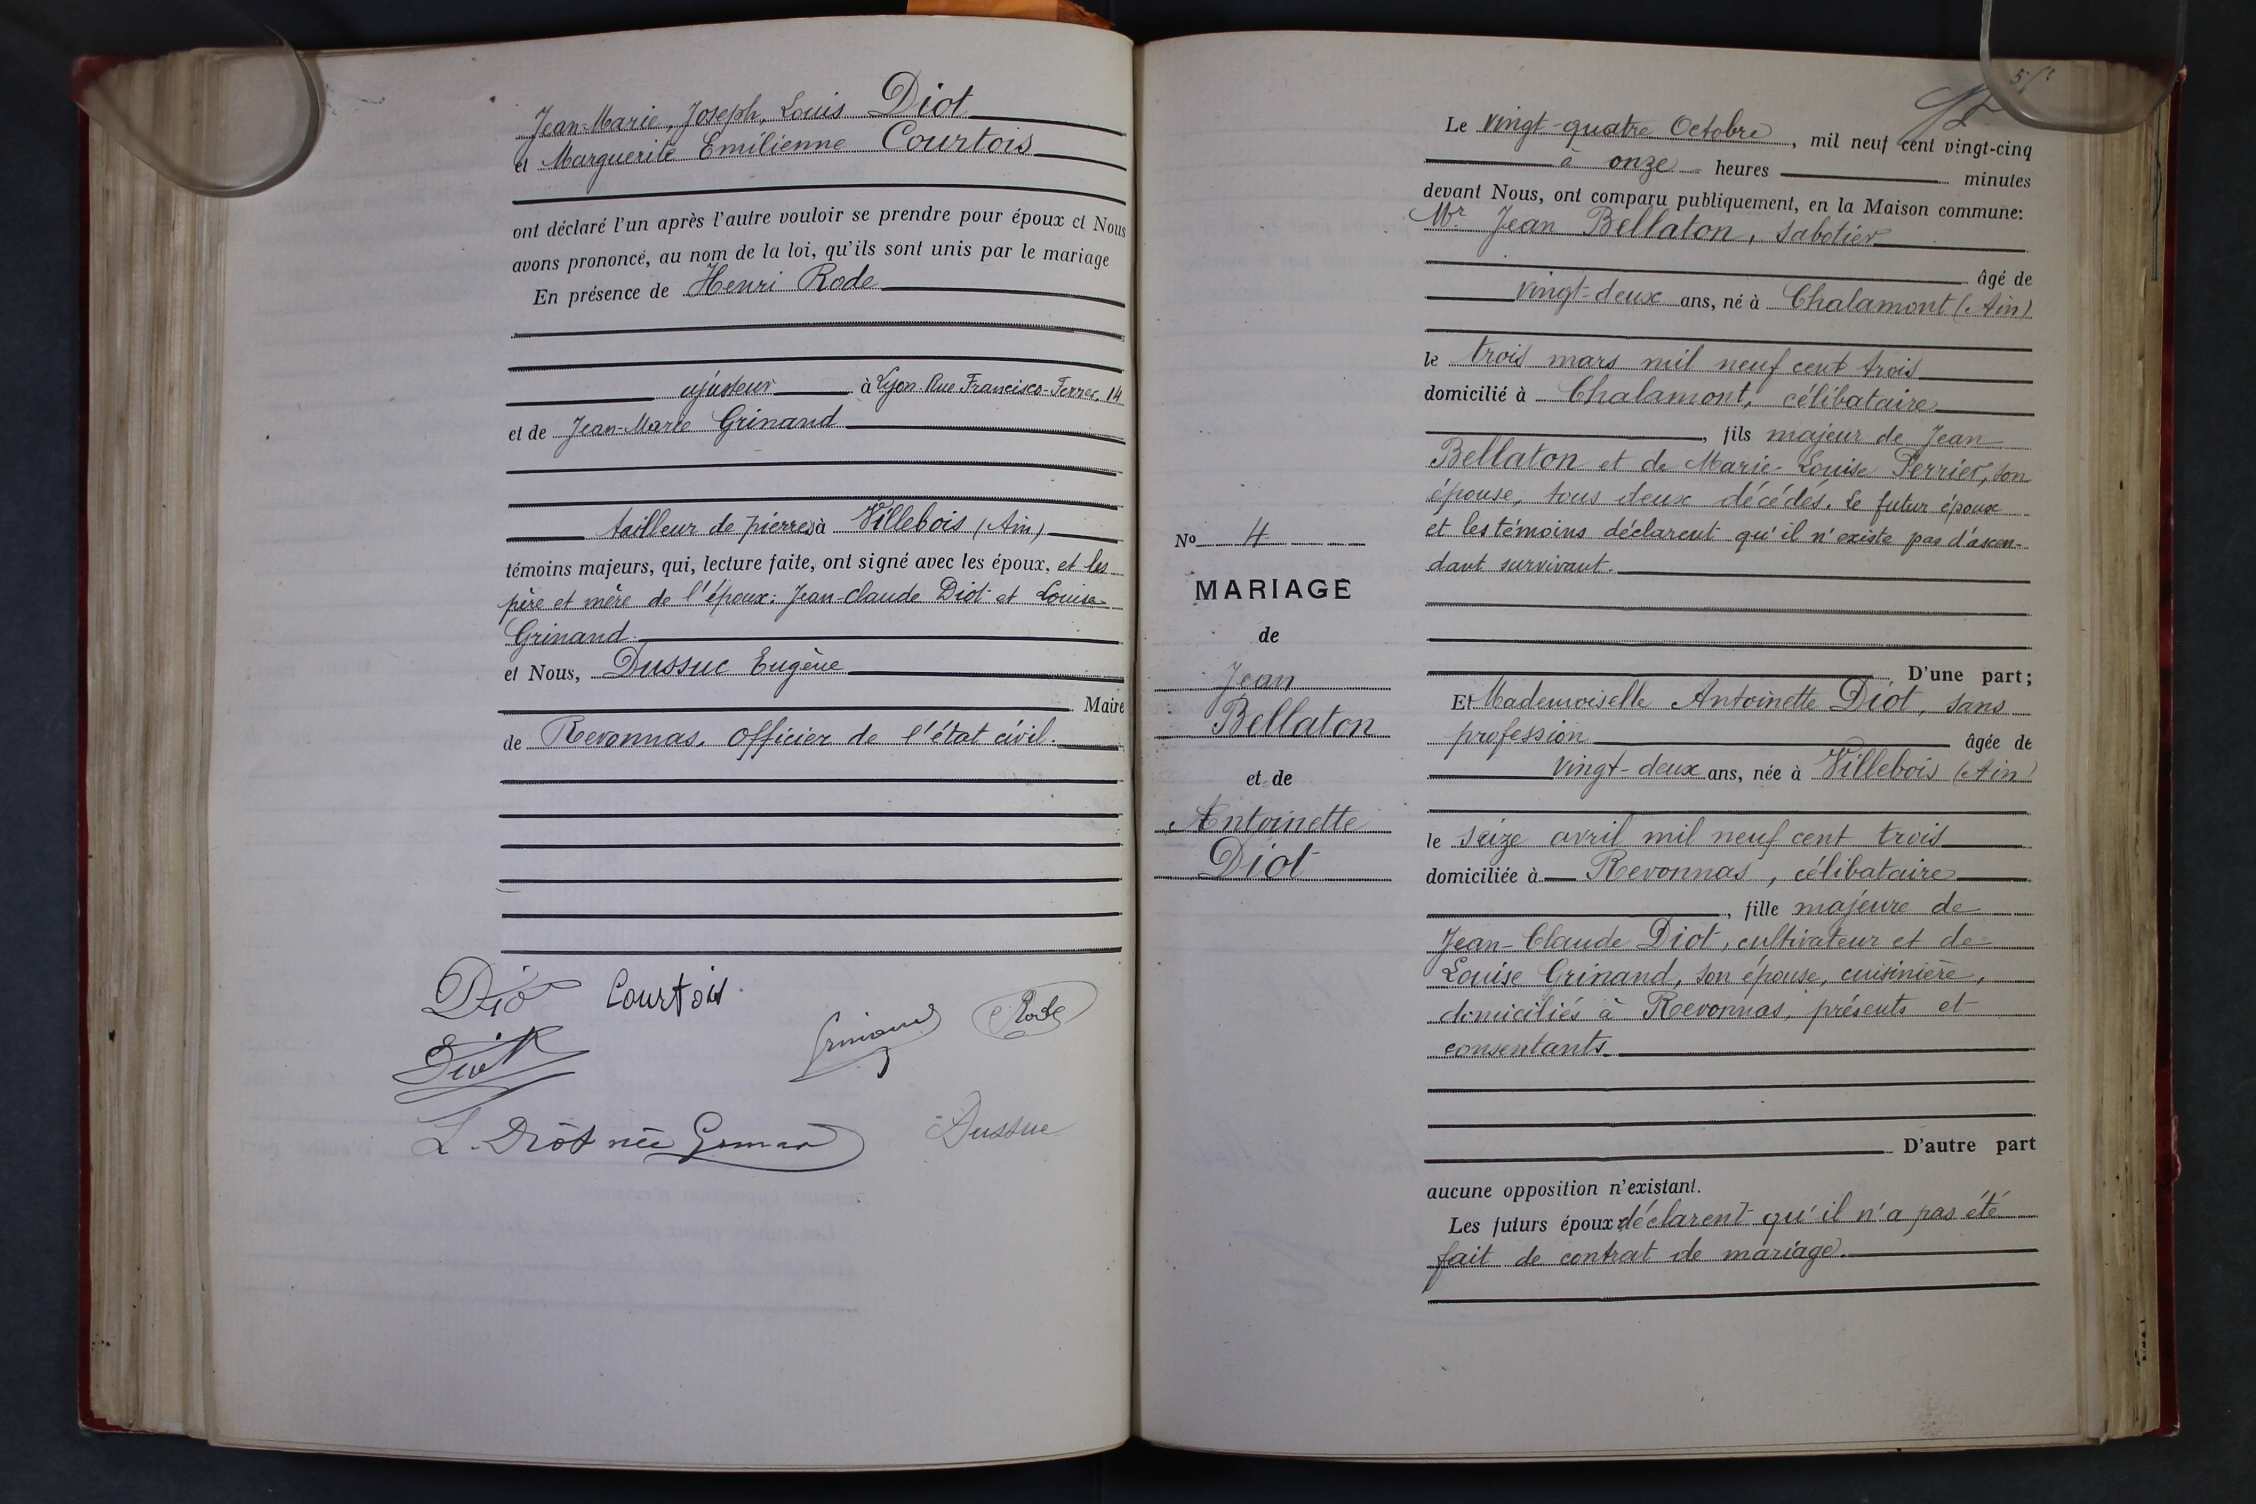 Jean-Marie, Joseph, Louis Diot
et Marguerite Emilienne Courtois
ont déclaré l'un après l'autre vouloir se prendre pour époux et Nous
avons prononcé, au nom de la loi, qu'ils sont unis par le mariage
En présence de Henri Rode
ajusteur à Lyon. Rue Francisco-Ferrer, 14
et de Jean-Marie Grinand
tailleur de pierres à Villebois (Ain)
témoins majeurs, qui, lecture faite, ont signé avec les époux, et les
père et mère de l'époux: Jean-Claude Diot et Louise
Grinand.
et Nous, Dussuc Eugène
Maire
de Revonnas. Officier de l'état civil.
Diot Courtois
Grinand Rode
Diot
L. Diot née Grinand
Dussuc
Le vingt-quatre Octobre, mil neuf cent vingt-cinq
à onze heures minutes
devant Nous, ont comparu publiquement, en la Maison commune:
Mr Jean Bellaton, sabotier
âgé de
vingt-deux ans, né à Chalamont (Ain)
le trois mars mil neuf cent trois
domicilié à Chalamont, célibataire
, fils majeur de Jean
Bellaton et de Marie-Louise Perrier, son
épouse, tous deux décédés. Le futur époux
et les témoins déclarent qu'il n'existe pas d'ascen-
dant survivant.
D'une part;
Et Mademoiselle Antoinette Diot, sans
profession âgée de
vingt-deux ans, née à Villebois (Ain)
le seize avril mil neuf cent trois
domiciliée à Revonnas, célibataire
, fille majeure de
Jean-Claude Diot, cultivateur et de
Louise Grinand, son épouse, cuisinière,
domiciliés à Revonnas, présents et
consentants
D'autre part
aucune opposition n'existant.
Les futurs époux déclarent qu'il n'a pas été
fait de contrat de mariage.
No 4
MARIAGE
de
Jean
Bellaton
et de
Antoinette
Diot